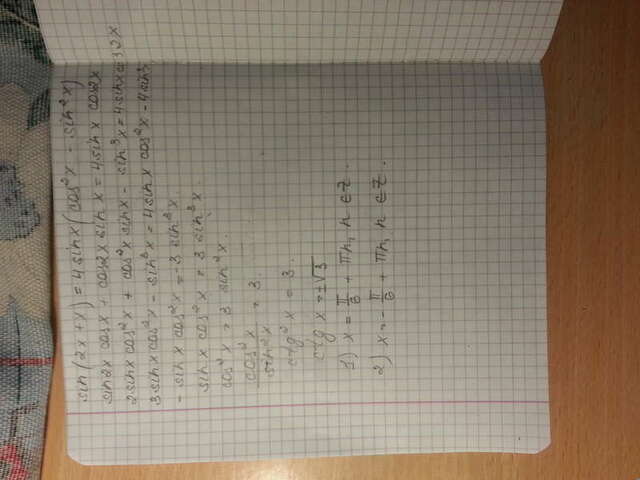 sin(2x+x) = 4 sinx(cos²x - sin²x)
sin2x cosx + cos2x sinx = 4 sinx cos2x
2 sinx cos²x + cos²x sinx - sin³x = 4 sinx cos2x
3 sinx cos²x - sin³x = 4 sinx cos²x - 4 sin³
- sinx cos²x = -3 sin³x
sinx cos²x = 3 sin³x
cos²x = 3 sin²x.
cos²x / sin²x = 3.
ctg²x = 3.
ctg x = ±√3
1) x = π/6 + πn, n ∈ Z.
2) x = -π/6 + πn, n ∈ Z.